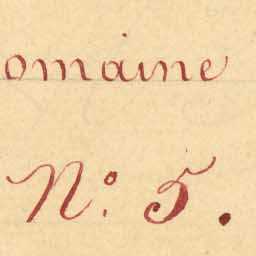 omaine
N.º 5.